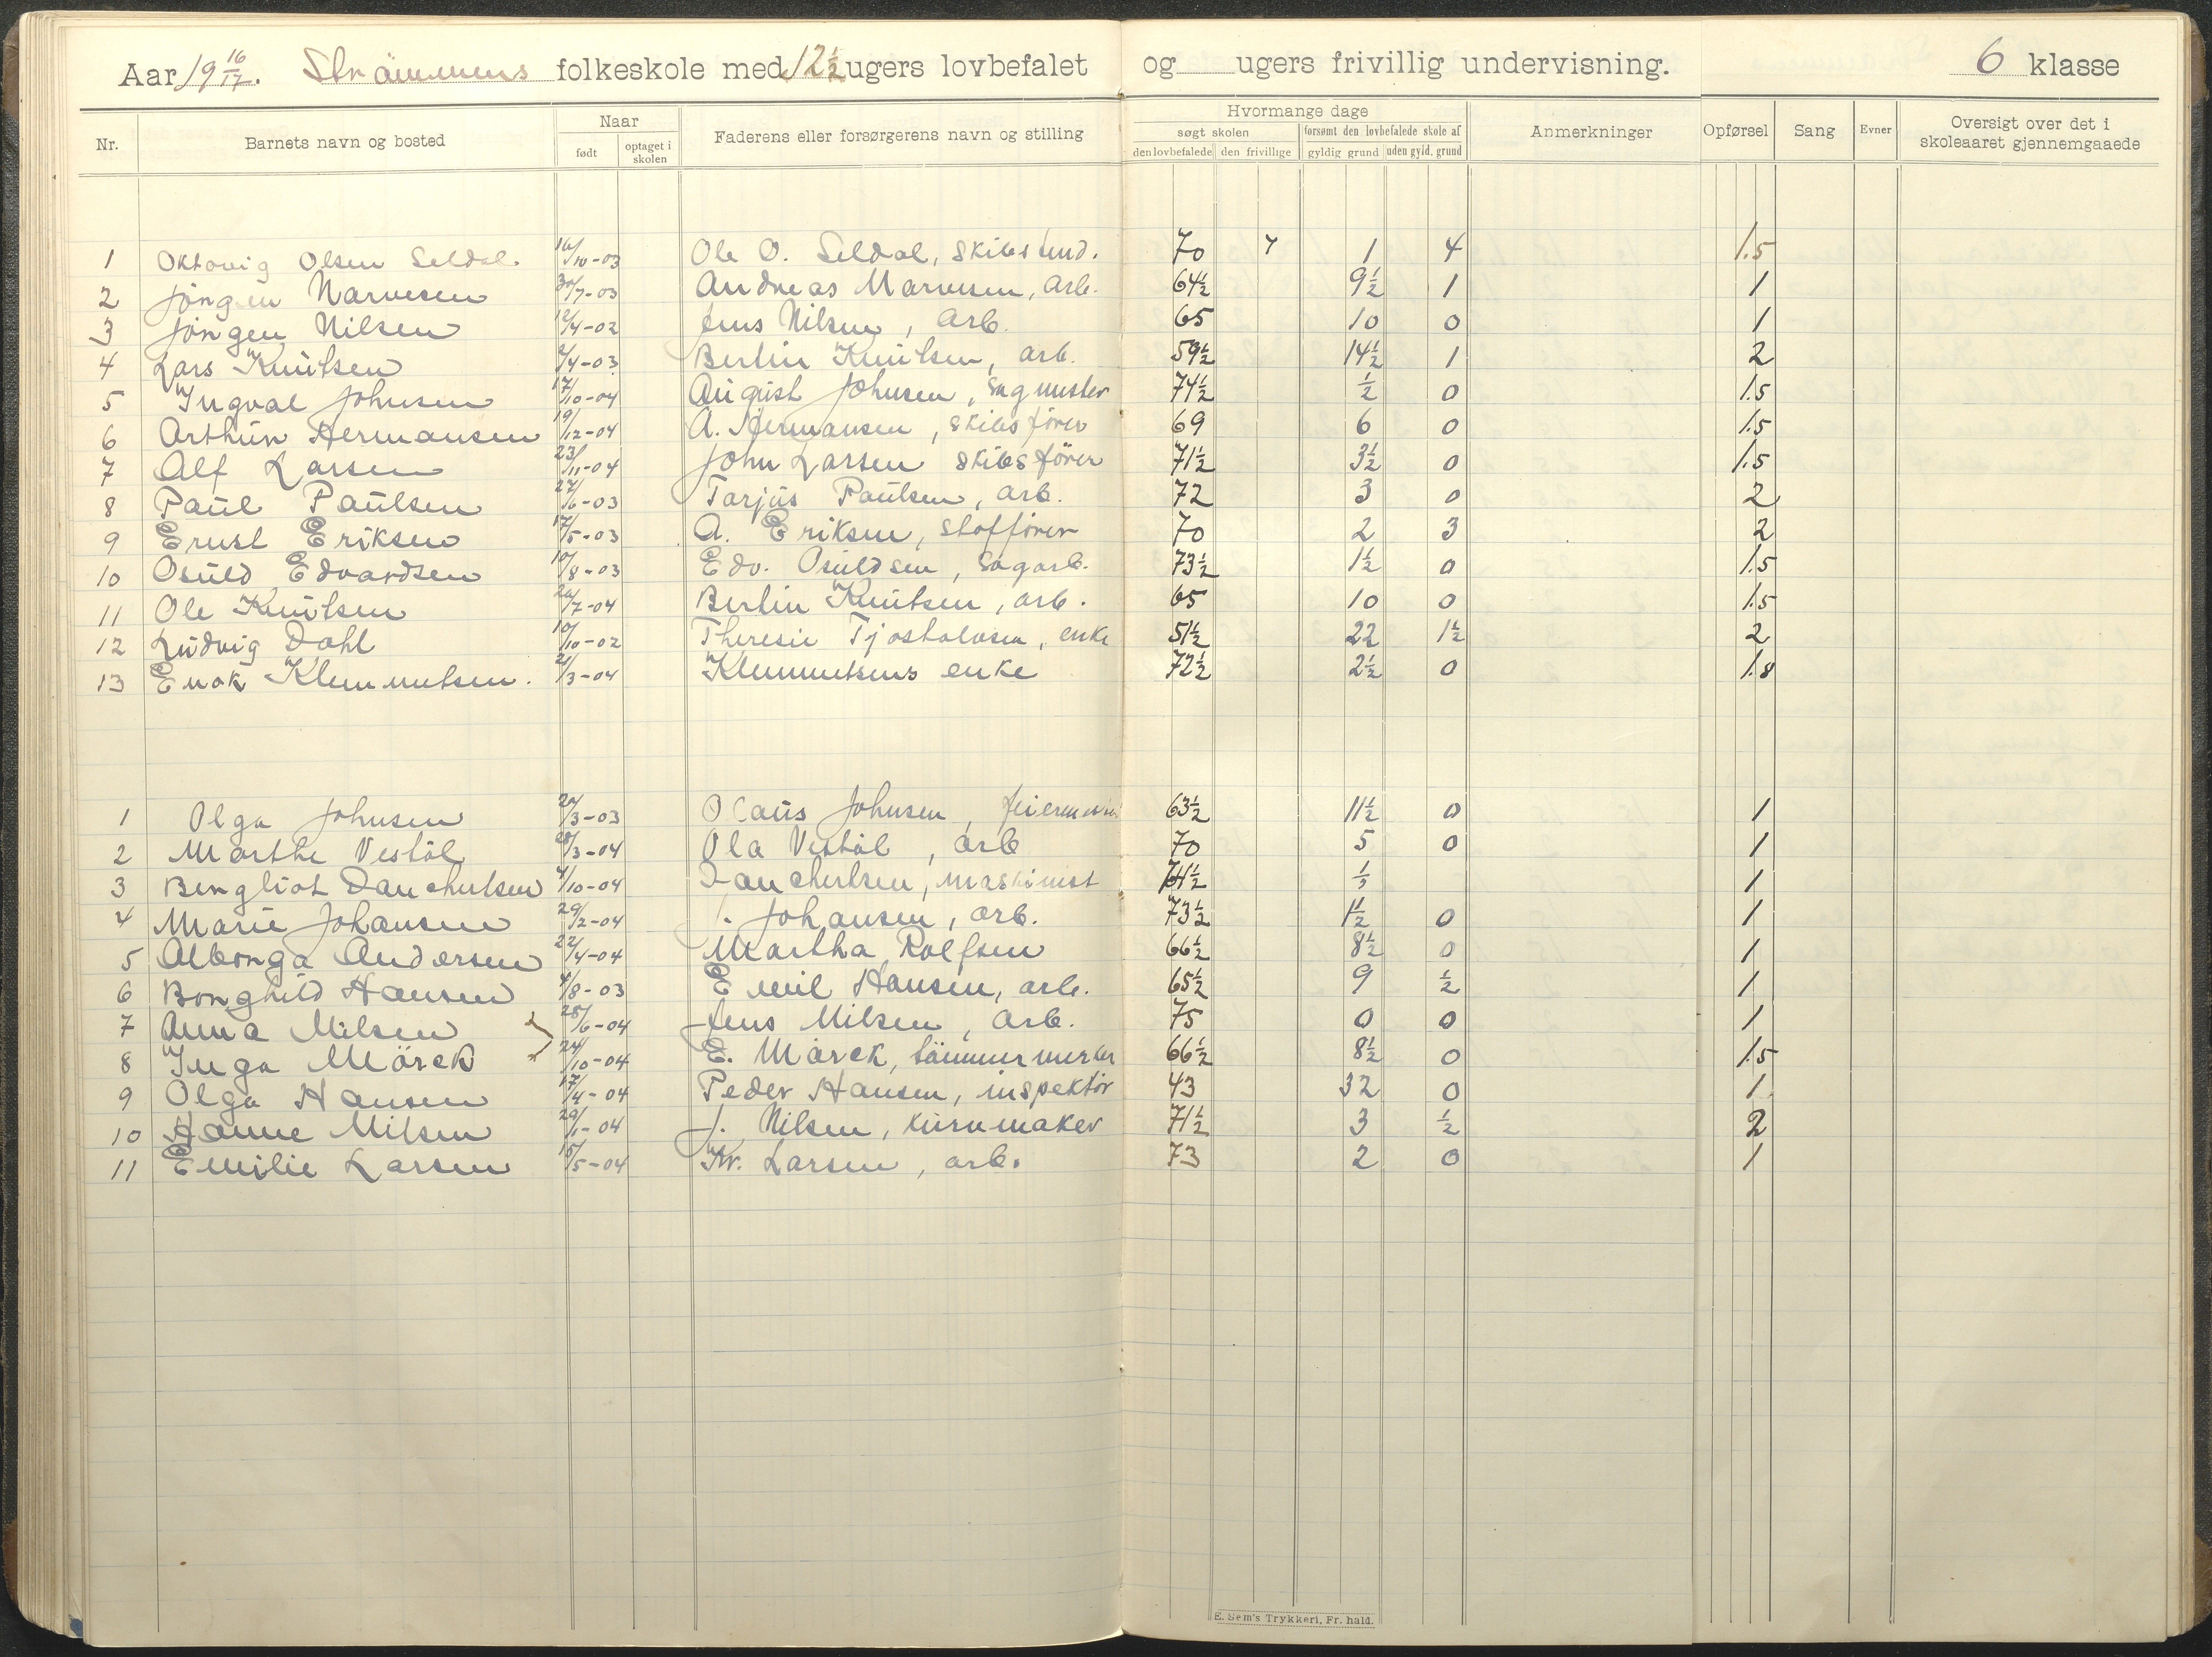 Aar 19 16/17. Strömmens folkeskole med 12½ ugers lovbefalet og ugers frivillig undervisning. 6 klasse
Nr. Barnets navn og bosted Naar født optaget i skolen Faderens eller forsørgerens navn og stilling Hvormange dage søgt skolen den lovbefalede den frivillige forsømt den lovbefalede skole af gyldig grund uden gyld. grund Anmerkninger Opførsel Sang Evner Oversigt over det i skoleaaret gjennemgaaede
1 Oktavig Olsen Seldal. 16/10-03 Ole O. Seldal, skibstmd. 70 7 1 4 1.5
2 Jörgen Narvesen 30/7-03 Andreas Narvesen, arb. 64½ 9½ 1 1
3 Jörgen Nilsen 12/4-02 Jens Nilsen, arb. 65 10 0 1
4 Lars Knutsen /4-03 Bertin Knutsen, arb. 59½ 14½ 1 2
5 Ingval Johnsen 17/10-04 August Johnsen, sagmester 74½ ½ 0 1.5
6 Arthur Hermansen 19/12-04 A. Hermansen, skibsfører 69 6 0 1.5
7 Alf Larsen 23/11-04 John Larsen skibsfører 71½ 3½ 0 1.5
8 Paul Paulsen 27/6-03 Tarjus Paulsen, arb. 72 3 0 2
9 Ernst Eriksen 17/5-03 A. Eriksen, slofförer 70 2 3 2
10 Osuld Edvardsen 10/8-03 Edv. Osuldsen, sagarb. 73½ 1½ 0 1.5
11 Ole Knutsen 26/7-04 Bertin Knutsen, arb. 65 10 0 1.5
12 Ludvig Dahl 10/10-02 Theresie Tjostolvsen, enke 51½ 22 1½ 2
13 Enok Klemmetsen. 21/3-04 Klemmetsens enke 72½ 2½ 0 1.8
1 Olga Johnsen 20/3-03 Olaus Johnsen, feierm 63½ 11½ 0 1
2 Marthe Vestöl 28/3-04 Ola Vestöl, arb 70 5 0 1
3 Bergliot Danchertsen 4/10-04 Danchertsen, maskinist 74½ ½ 1
4 Marie Johansen 29/2-04 J. Johansen, arb. 73½ 1½ 0 1
5 Alborga Andersen 22/4-04 Martha Rolfsen 66½ 8½ 0 1
6 Borghild Hansen 4/8-03 Emil Hansen, arb. 65½ 9 ½ 1
7 Anna Nilsen 28/6-04 Jens Nilsen, arb. 75 0 0 1
8 Inga Mörck 24/10-04 E. Mörck, tömmermerker 66½ 8½ 0 1.5
9 Olga Hansen 17/4-04 Peder Hansen, inspektör 43 32 0 1
10 Hanne Nilsen 29/1-04 J. Nilsen, kurvmaker 71½ 3 ½ 2
11 Emilie Larsen 15/5-04 Kr. Larsen, arb. 73 2 0 1
E. Sem's Trykkeri, Fr. hald.